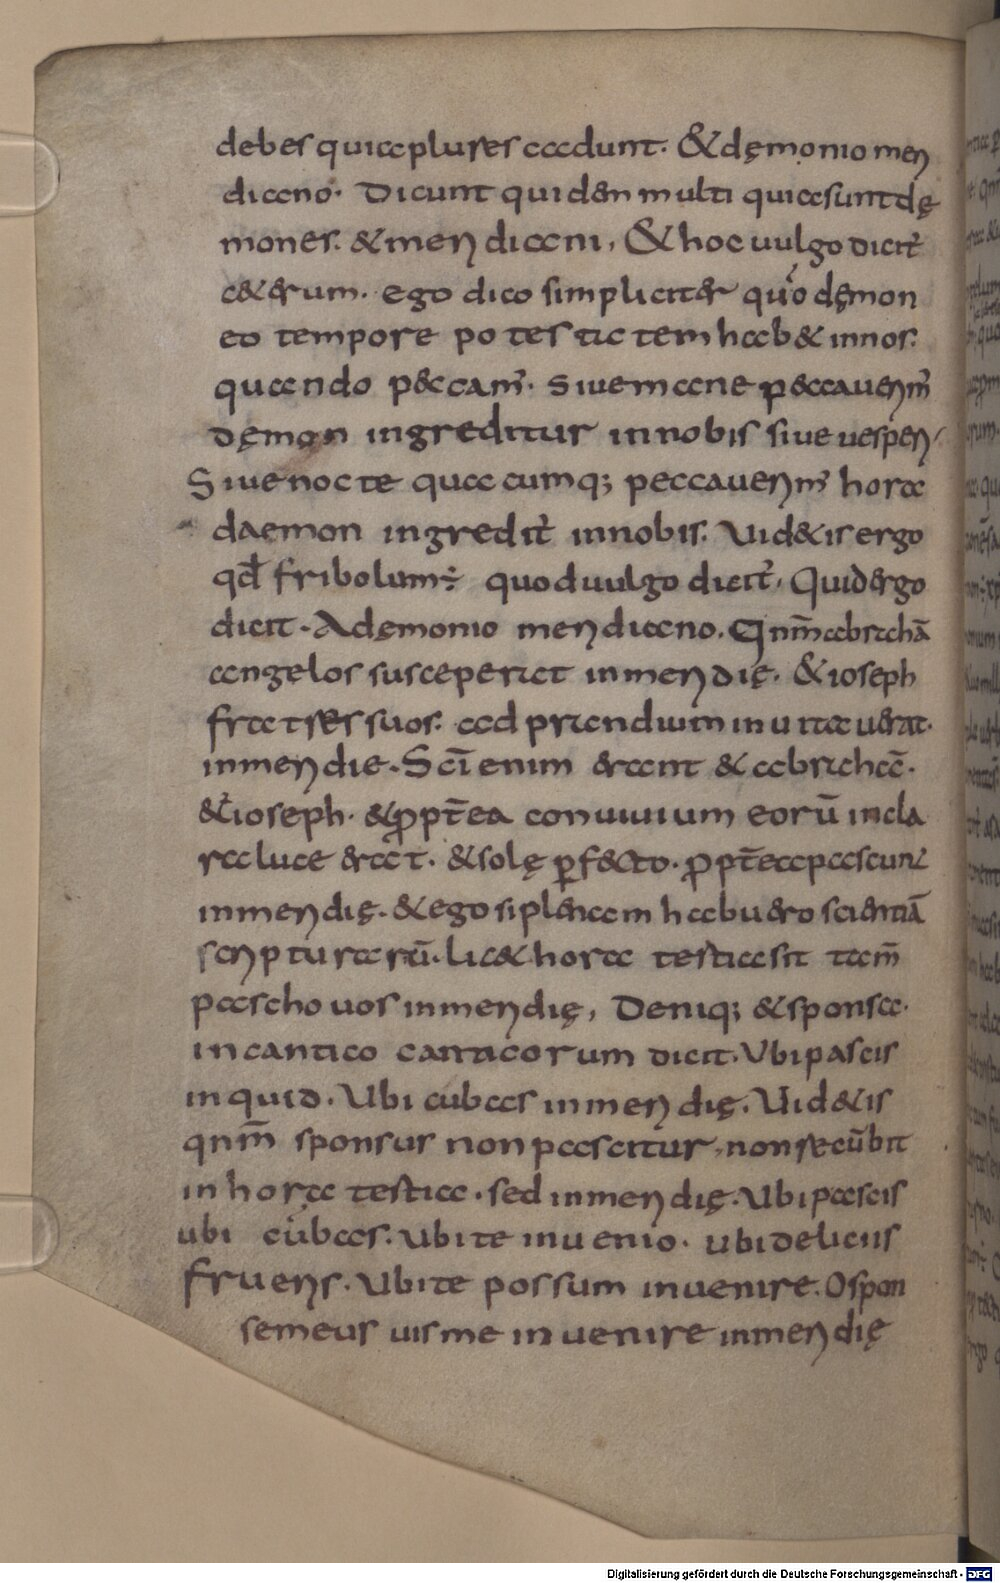 debes quia plures cadunt. & dęmonio meri
diano. Dicunt quidem multi quia sunt dę
mones. & meridiani, & hoc uulgo dicit̃
c&erum. ego dico simpliciter qu̇o dęmon
eo tempore potestatem hab& in nos.
quando peccam̃. Siue mane peccauerim̃
dęmon ingreditur in nobis siue uesperi
Siue nocte quacumq; peccauerim̃ hora
daemon ingredit̃ in nobis. Uid&is ergo
qđ fribolum÷ quod uulgo dicit̃, Quid ergo
dicit. A dęmonio meridiano. Qnm̃ abrahā
angelos suscepe in meridię. & ioseph
fratres suos. ad prandium inuitauerat.
in meridie. Sc̄i enim erant & abrahā.
& ioseph. & ꝓpt̃ea conuiuium eorū in cla
ra luce erat. & solę ꝑfecto. ꝓpt̃ea pascunt
in meridię. & ego si plenam habuero scientiā
scripturarū. lic& hora testia sit tam̃
pascho uos in meridię, Deniq; & sponsa.
in cantico canticorum dicit. Ubi pascis
inquid. Ubi cubas in meridię. Uid&is
qnm̃ sponsus non pascitur, non recūbit
in hora testia. sed in meridię. Ubi pascis
ubi cubas. Ubi te inuenio. ubi deliciis
frueris. Ubi te possum inuenire. O spon
se meus uis me inuenire in meridię
Digitalisierung gefördert durch die Deutsche Forschungsgemeinschaft - DFG